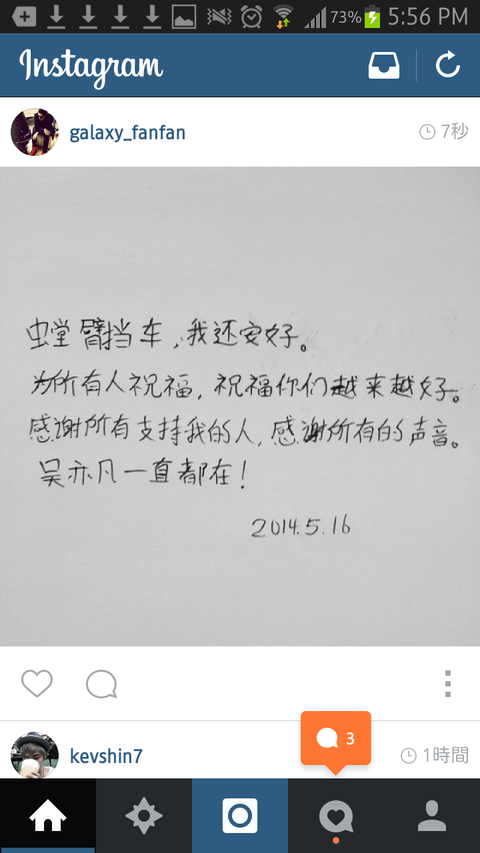 73% 5:56 PM
Instagram
galaxy_fanfan 7秒
螳臂挡车,我还安好。
为所有人祝福,祝福你们越来越好。
感谢所有支持我的人,感谢所有的声音。
吴亦凡一直都在!
2014.5.16
3
kevshin7 1時間